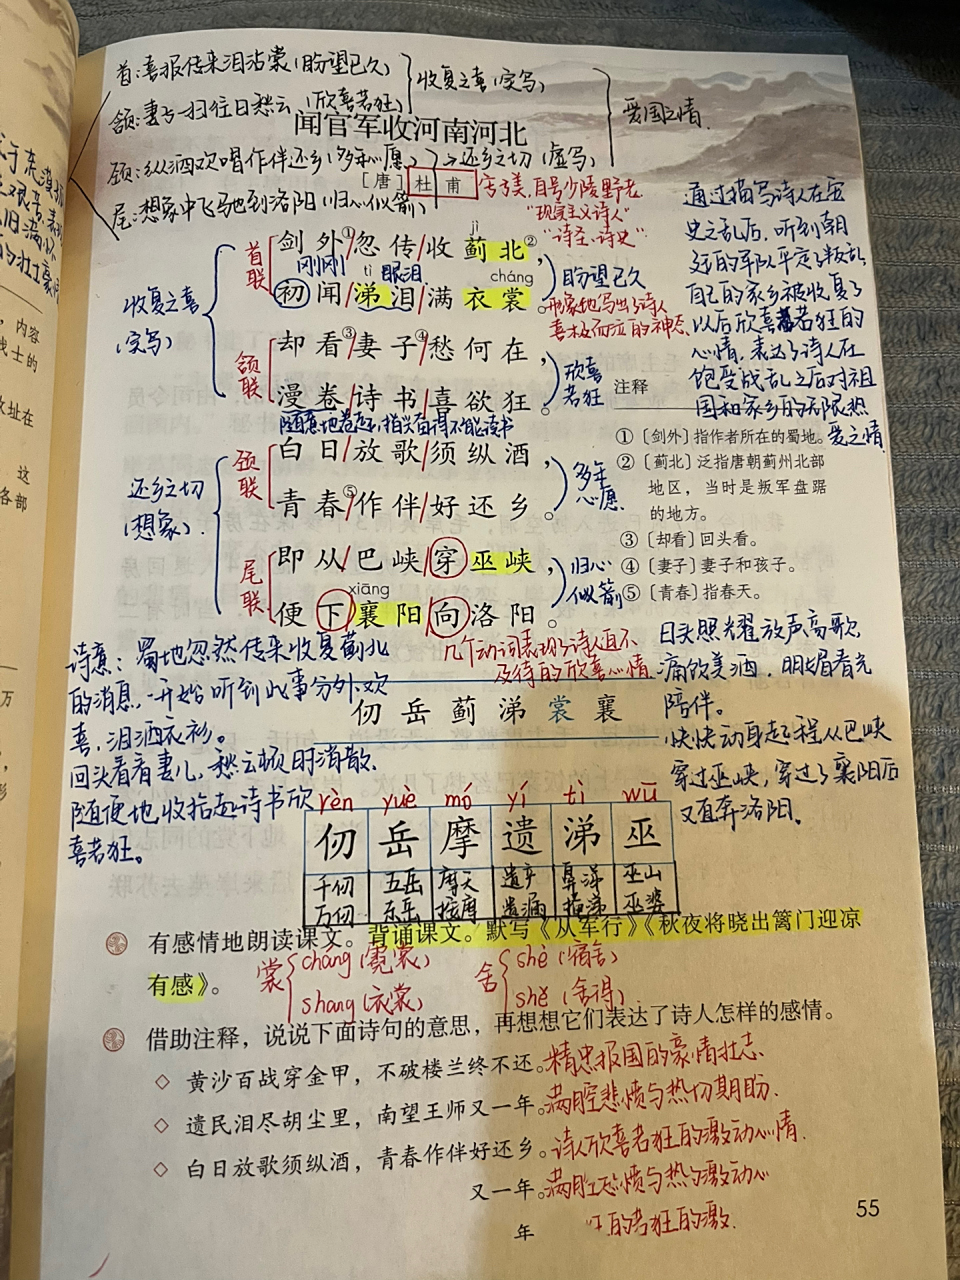 首:喜报传来泪沾裳(盼望已久)
收复之喜(实写)
颔:妻子一扫往日愁云(欣喜若狂)
爱国之情
闻官军收河南河北
颈:纵酒欢唱作伴还乡(多年心愿)
还乡之切(虚写)
〔唐〕杜甫
字子美,自号少陵野老
“现实主义诗人”
“诗圣、诗史”
尾:想象中飞驰到洛阳(归心似箭)
首联
jì
剑外①/忽传/收蓟北②,
刚刚
tì
眼泪
cháng
初闻/涕泪/满衣裳。
盼望已久
形象地写出了诗人
喜极而泣的神态
收复之喜
(实写)
颔联
却看③/妻子④/愁何在,
漫卷/诗书/喜欲狂。
欣喜
若狂
随意地卷起,指高兴得不能读书
颈联
白日/放歌/须纵酒,
青春⑤/作伴/好还乡。
多年
心愿
还乡之切
(想象)
尾联
即从/巴峡/穿巫峡,
xiāng
便下/襄阳/向洛阳。
归心
似箭
几个动词表现了诗人迫不
及待的欣喜心情
通过描写诗人在安
史之乱后,听到朝
廷的军队平定了叛乱
自己的家乡被收复了
以后欣喜若狂的
心情,表达了诗人在
饱受战乱之后对祖
国和家乡的无限热
爱之情
注释
①〔剑外〕指作者所在的蜀地。
②〔蓟北〕泛指唐朝蓟州北部
地区,当时是叛军盘踞
的地方。
③〔却看〕回头看。
④〔妻子〕妻子和孩子。
⑤〔青春〕指春天。
诗意:蜀地忽然传来收复蓟北
的消息,一开始听到此事分外欢
喜,泪洒衣衫。
回头看看妻儿,愁云顿时消散、
随便地收拾起诗书欣
喜若狂。
日头照耀放声高歌,
痛饮美酒,明媚春光
陪伴。
快快动身起程从巴峡
穿过巫峡,穿过了襄阳后
又直奔洛阳。
仞岳蓟涕裳襄
rèn yuè mó yí tì wū
仞岳摩遗涕巫
千仞 五岳 摩天 遗产 鼻涕 巫山
万仞 东岳 按摩 遗漏 掩涕 巫婆
有感情地朗读课文。背诵课文。默写《从军行》《秋夜将晓出篱门迎凉
有感》。
裳
cháng(霓裳)
shang(衣裳)
舍
shè(宿舍)
shě(舍得)
借助注释,说说下面诗句的意思,再想想它们表达了诗人怎样的感情。
◇ 黄沙百战穿金甲,不破楼兰终不还。精忠报国的豪情壮志、
◇ 遗民泪尽胡尘里,南望王师又一年。满腔悲愤与热切期盼、
◇ 白日放歌须纵酒,青春作伴好还乡。诗人欣喜若狂的激动心情.
又一年。
年
55
内容
战士的
址在
这
各部
万